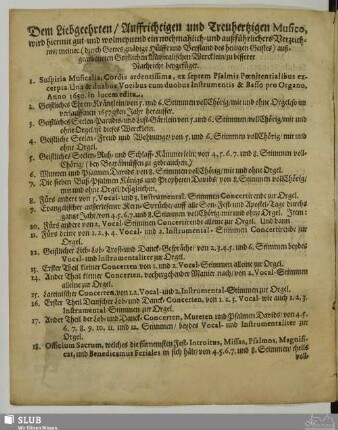 Dem Liebgeehrten / Auffrichtigen und Treuhertzigen Musico,
wird hiermit gut- und wolmeinend ein wochmahlich- und außführlichere Verzeich-
nis meiner (durch Gottes gnädige Hülffe und Beystand des heiligen Geistes) auß-
gearbeiteten Geistlichen Musicalischen Wercklein / zu besserer
Nachricht beygefüget.
1. Suspiria Musicalia, Cordis ardentissima, ex septem Psalmis Pœnitentialibus ex-
cerpta Una & duabus Vocibus cum duobus Instrumentis & Basso pro Organo,
Anno 1650. in lucem edita.
2. Geistliches Ehren-Kräntzlein von 5. und 6. Stimmen vollChörig / mit und ohne Orgel / so im
verlauffenen 1657sten Jahr heraußer.
3. Geistliches Seelen-Paradies und Lust-Gärtlein von 5. und 6. Stimmen vollChörig / mit und
ohne Orgel ist dieses Wercklein.
4. Geistliches Seelen- Freud und Wohnung / von 5. und 6. Stimmen vollChörig / mit und
ohne Orgel.
5. Geistliches Seelen-Ruh- und Schlaff-Kämmerlein / von 4. 5. 6. 7. und 8. Stimmen voll-
Chörig / (bey Begräbnüssen zu gebrauchen.)
6. Muteten und Psalmen Davids / von 8. Stimmen vollChörig / mit und ohne Orgel.
7. Die sieben Buß-Psalmen Königs und Propheten Davids / von 8. Stimmen vollChörig /
mit und ohne Orgel deßgleichen.
8. Fürs ander von 5. Vocal- und 3. Instrumental- Stimmen Concertirende zur Orgel.
9. Evangelischer außerlesener Kern-Sprüche / auff alle Son- Fest- und Apostel-Tage durchs
gantze Jahr / von 4. 5. 6. 7. und 8. Stimmen vollChörig / mit und ohne Orgel. Item:
10. Fürs ander von 2. Vocal-Stimmen Concertirende alleine zur Orgel. Und dann
11. Fürs dritte von 1. 2. 3. 4. Vocal- und 2. Instrumental- Stimmen Concertirende zur
Orgel.
12. Geistlicher Lieb- Lob- Trost- und Danck- Gespräche / von 2. 3. 4. 5. und 6. Stimmen beydes
Vocal- und Instrumentaliter zur Orgel.
13. Erster Theil kurtzer Concerten von 1. und 2. Vocal-Stimmen alleine zur Orgel.
14. Ander Theil kurtzer Concerten, vorhergehender Manier nach / von 2. Vocal-Stimmen
alleine zur Orgel.
15. Lateinischer Concerten, von 1. 2. Vocal- und 2. Instrumental-Stimmen zur Orgel.
16. Erster Theil Deutscher Lob- und Danck- Concerten, von 1. 2. 3. Vocal- wie auch 1. 2. 3.
Instrumental-Stimmen zur Orgel.
17. Ander Theil der Lob- und Danck- Concerten, Muteten und Psalmen Davids / von 4. 5.
6. 7. 8. 9. 10. 11. und 12. Stimmen / beydes Vocal- und Instrumentaliter zur
Orgel.
18. Officium Sacrum, welches die fürnemsten Fest- Introitus, Missas, Psalmos, Magnifi-
cat, und Benedicamus Feriales in sich hält / von 4. 5. 6. 7. und 8. Stimmen / theils
voll-
SLUB
Wir führen Wissen.